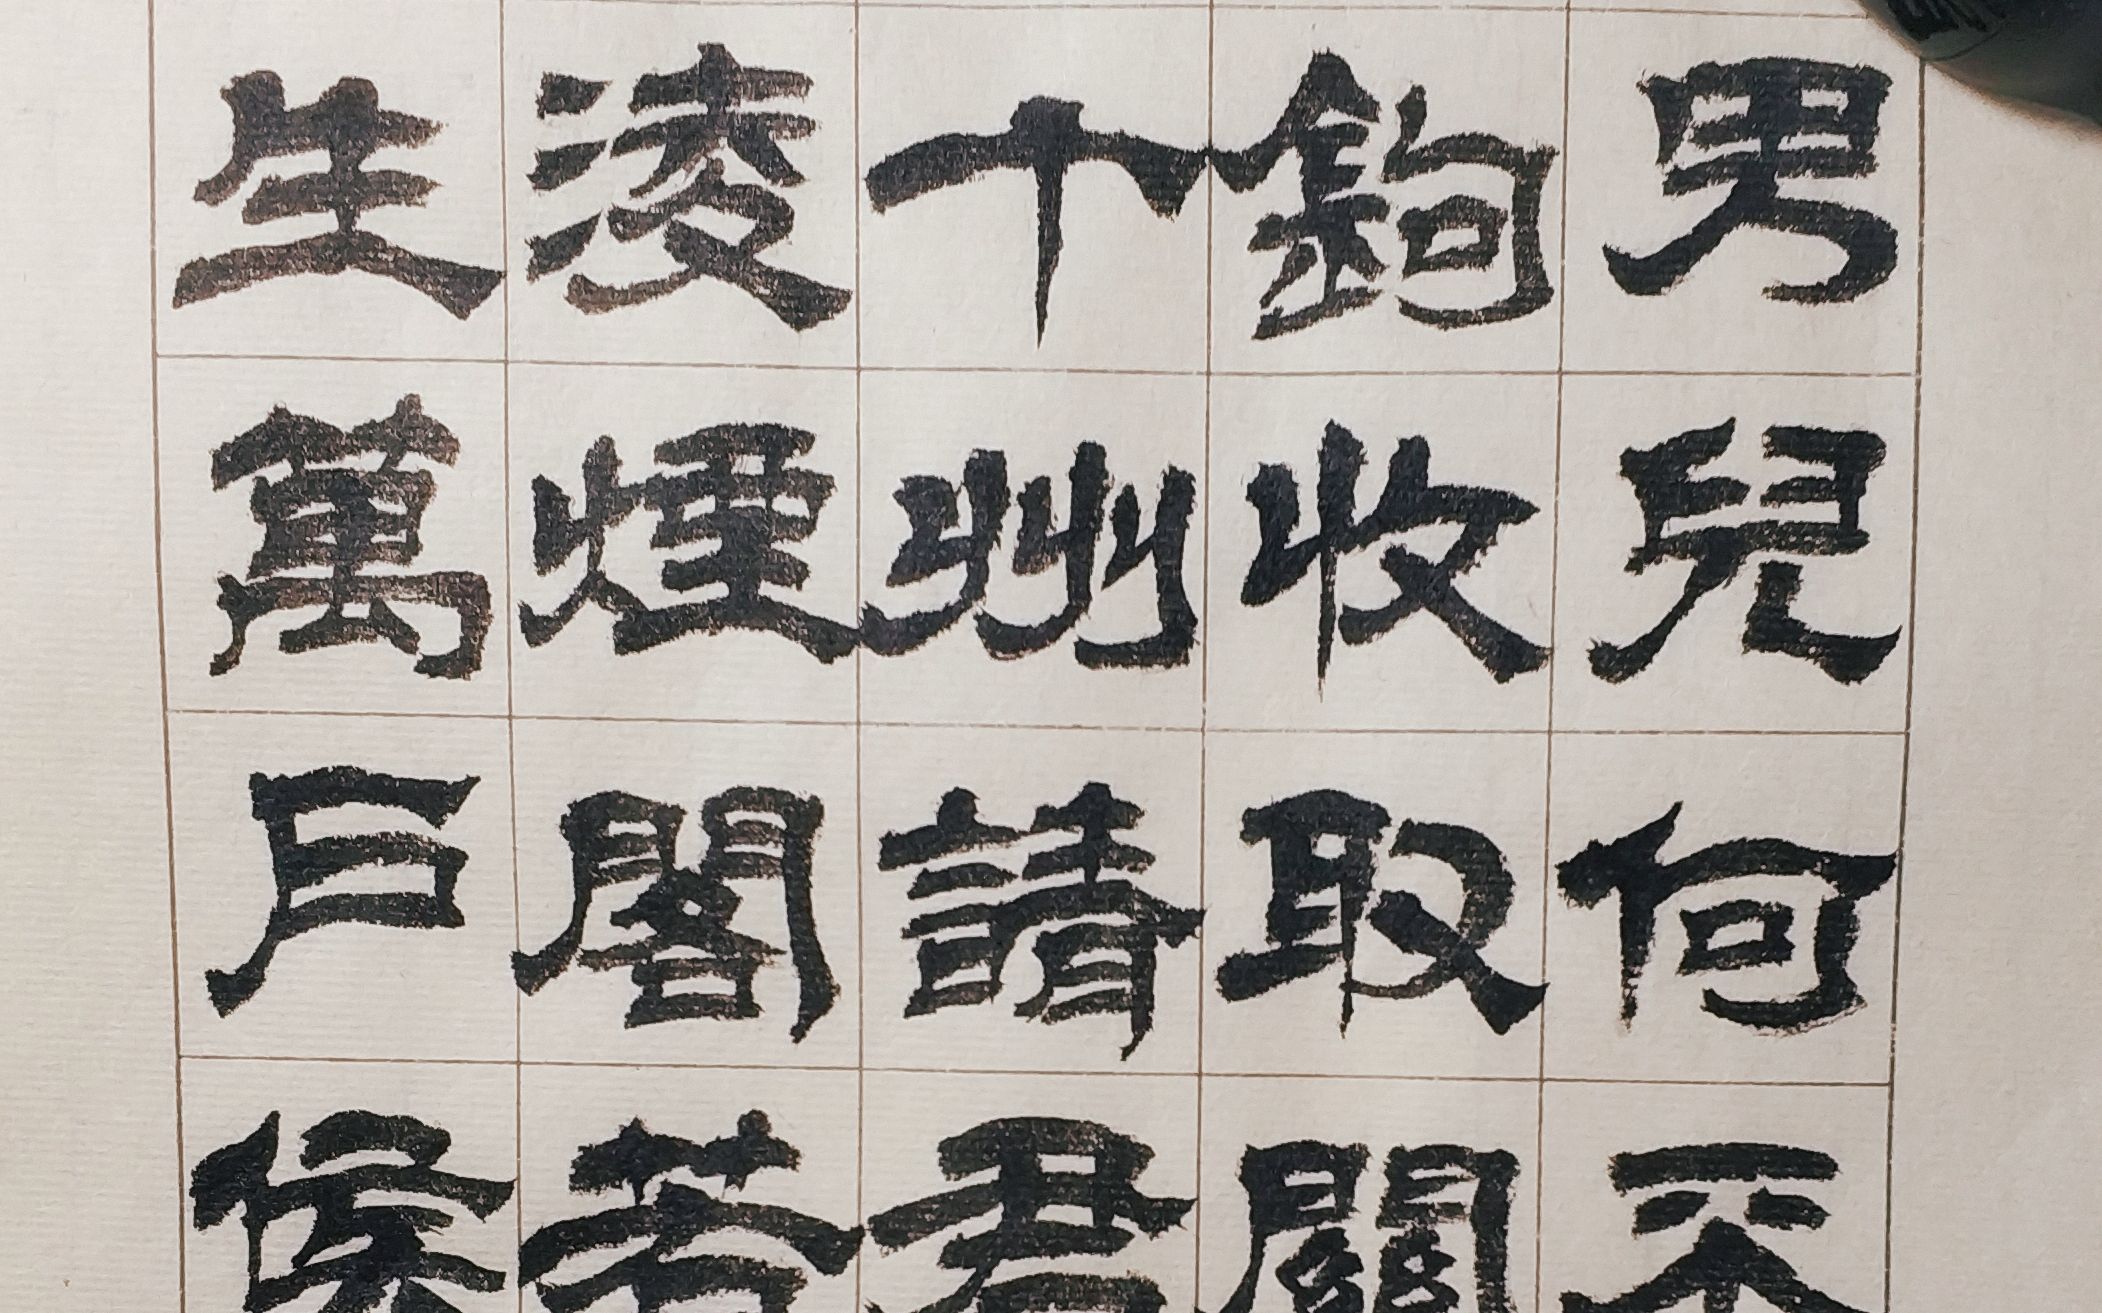 男兒何不
鉤收取關
十州請君
淩煙閣若
生萬戶侯